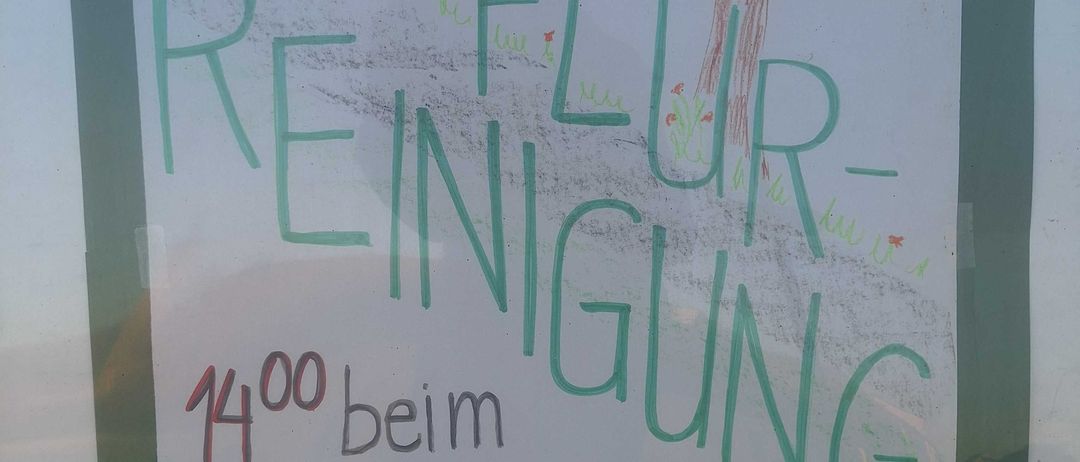 FLUR-
REINIGUNG
14⁰⁰ beim